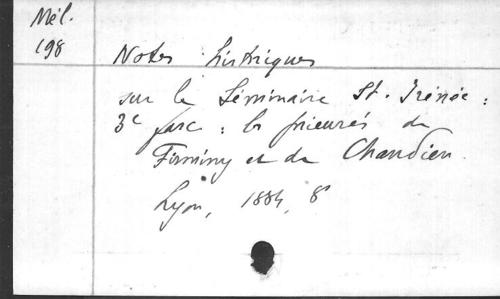 Mél.
198
Notes historiques
sur le Séminaire St. Irénée :
3e fasc : les prieurés de
Firminy et de Chandieu.
Lyon, 1884, 8°